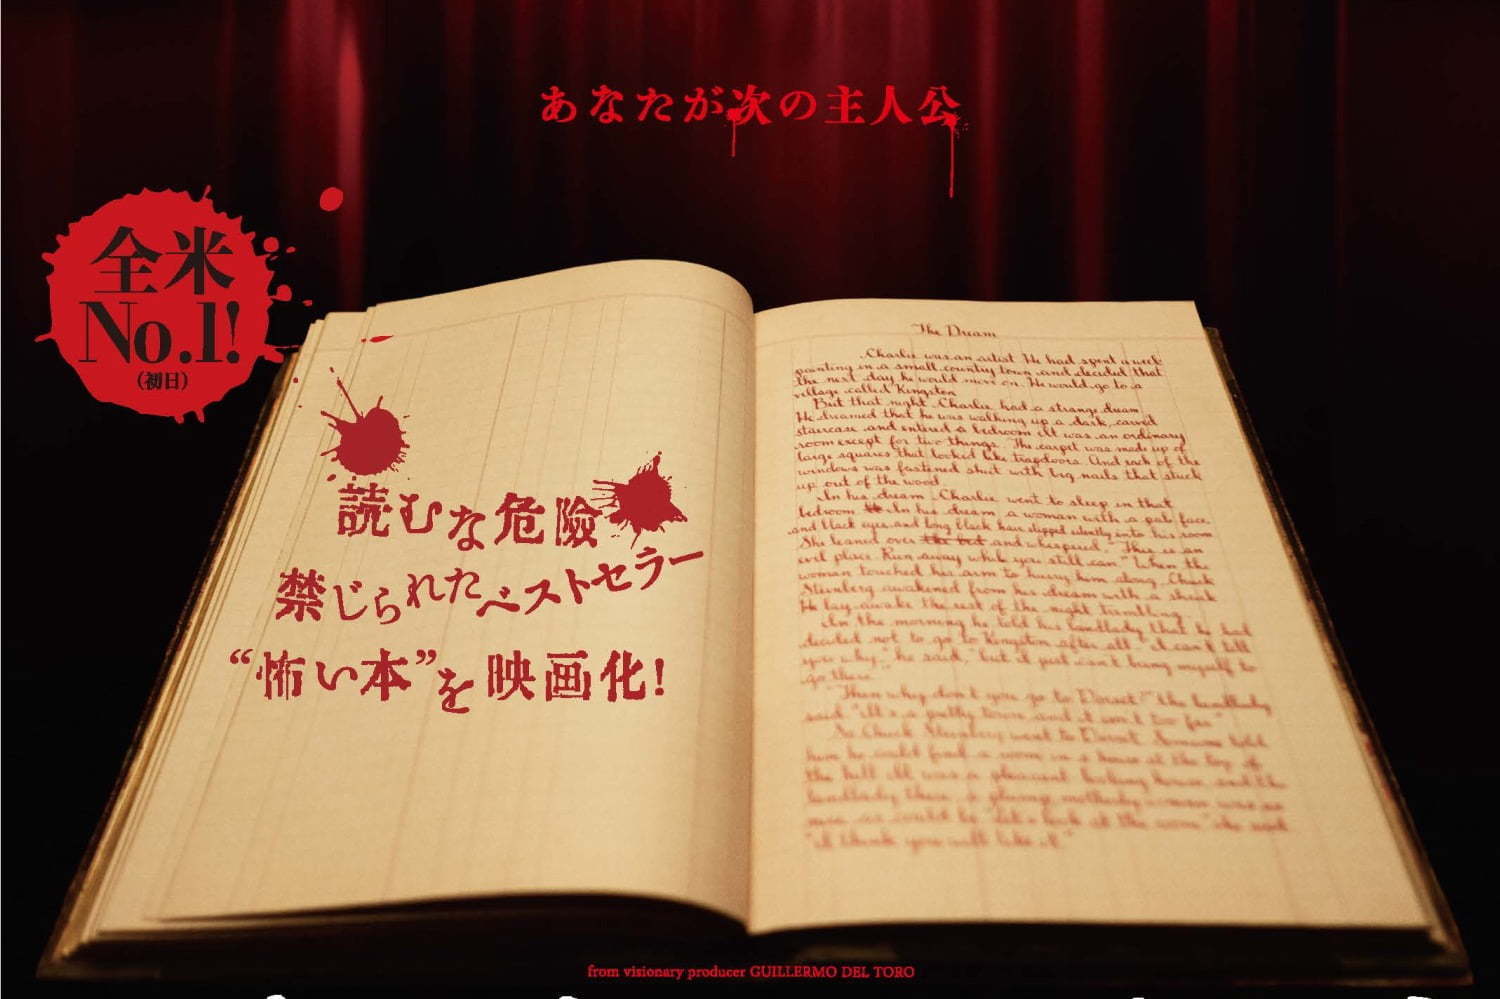 あなたが次の主人公
全米
No.1!
(初日)
読むな危険
禁じられたベストセラー
“怖い本”を映画化!
The Dream
Charlie was an artist He had spent a week
painting in a small country town and decided that
the next day he would move on. He would go to a
village called Kingston
But that night Charlie had a strange dream
He dreamed that he was walking up a dark, carved
staircase and entered a bedroom It was an ordinary
room except for two things. The carpet was made up of
large squares that looked like trapdoors. And each of the
windows was fastened shut with big nails that stuck
up out of the wood.
In his dream Charlie went to sleep in that
bedroom In his dream a woman with a pale face
and black eyes and long black hair slipped silently into his room
She leaned over the bed and whispered, "This is an
evil place. Run away while you still can." When the
woman touched his arm to hurry him along, Chuck
Steinberg awakened from his dream with a shriek
He lay awake the rest of the night trembling
In the morning he told his landlady that he had
decided not to go to Kingston after all. "I can't tell
you why," he said, "but I just can't bring myself to
go there"
"Then why don't you go to Dorset?" the landlady
said "It's a pretty town and it isn't too far"
So Chuck Steinberg went to Dorset. Someone told
him he could find a room in a house at the top of
the hill It was a pleasant looking house and the
landlady there, a plump motherly woman was as
nice as could be "Let's look at the room" she said
"I think you will like it."
from visionary producer GUILLERMO DEL TORO